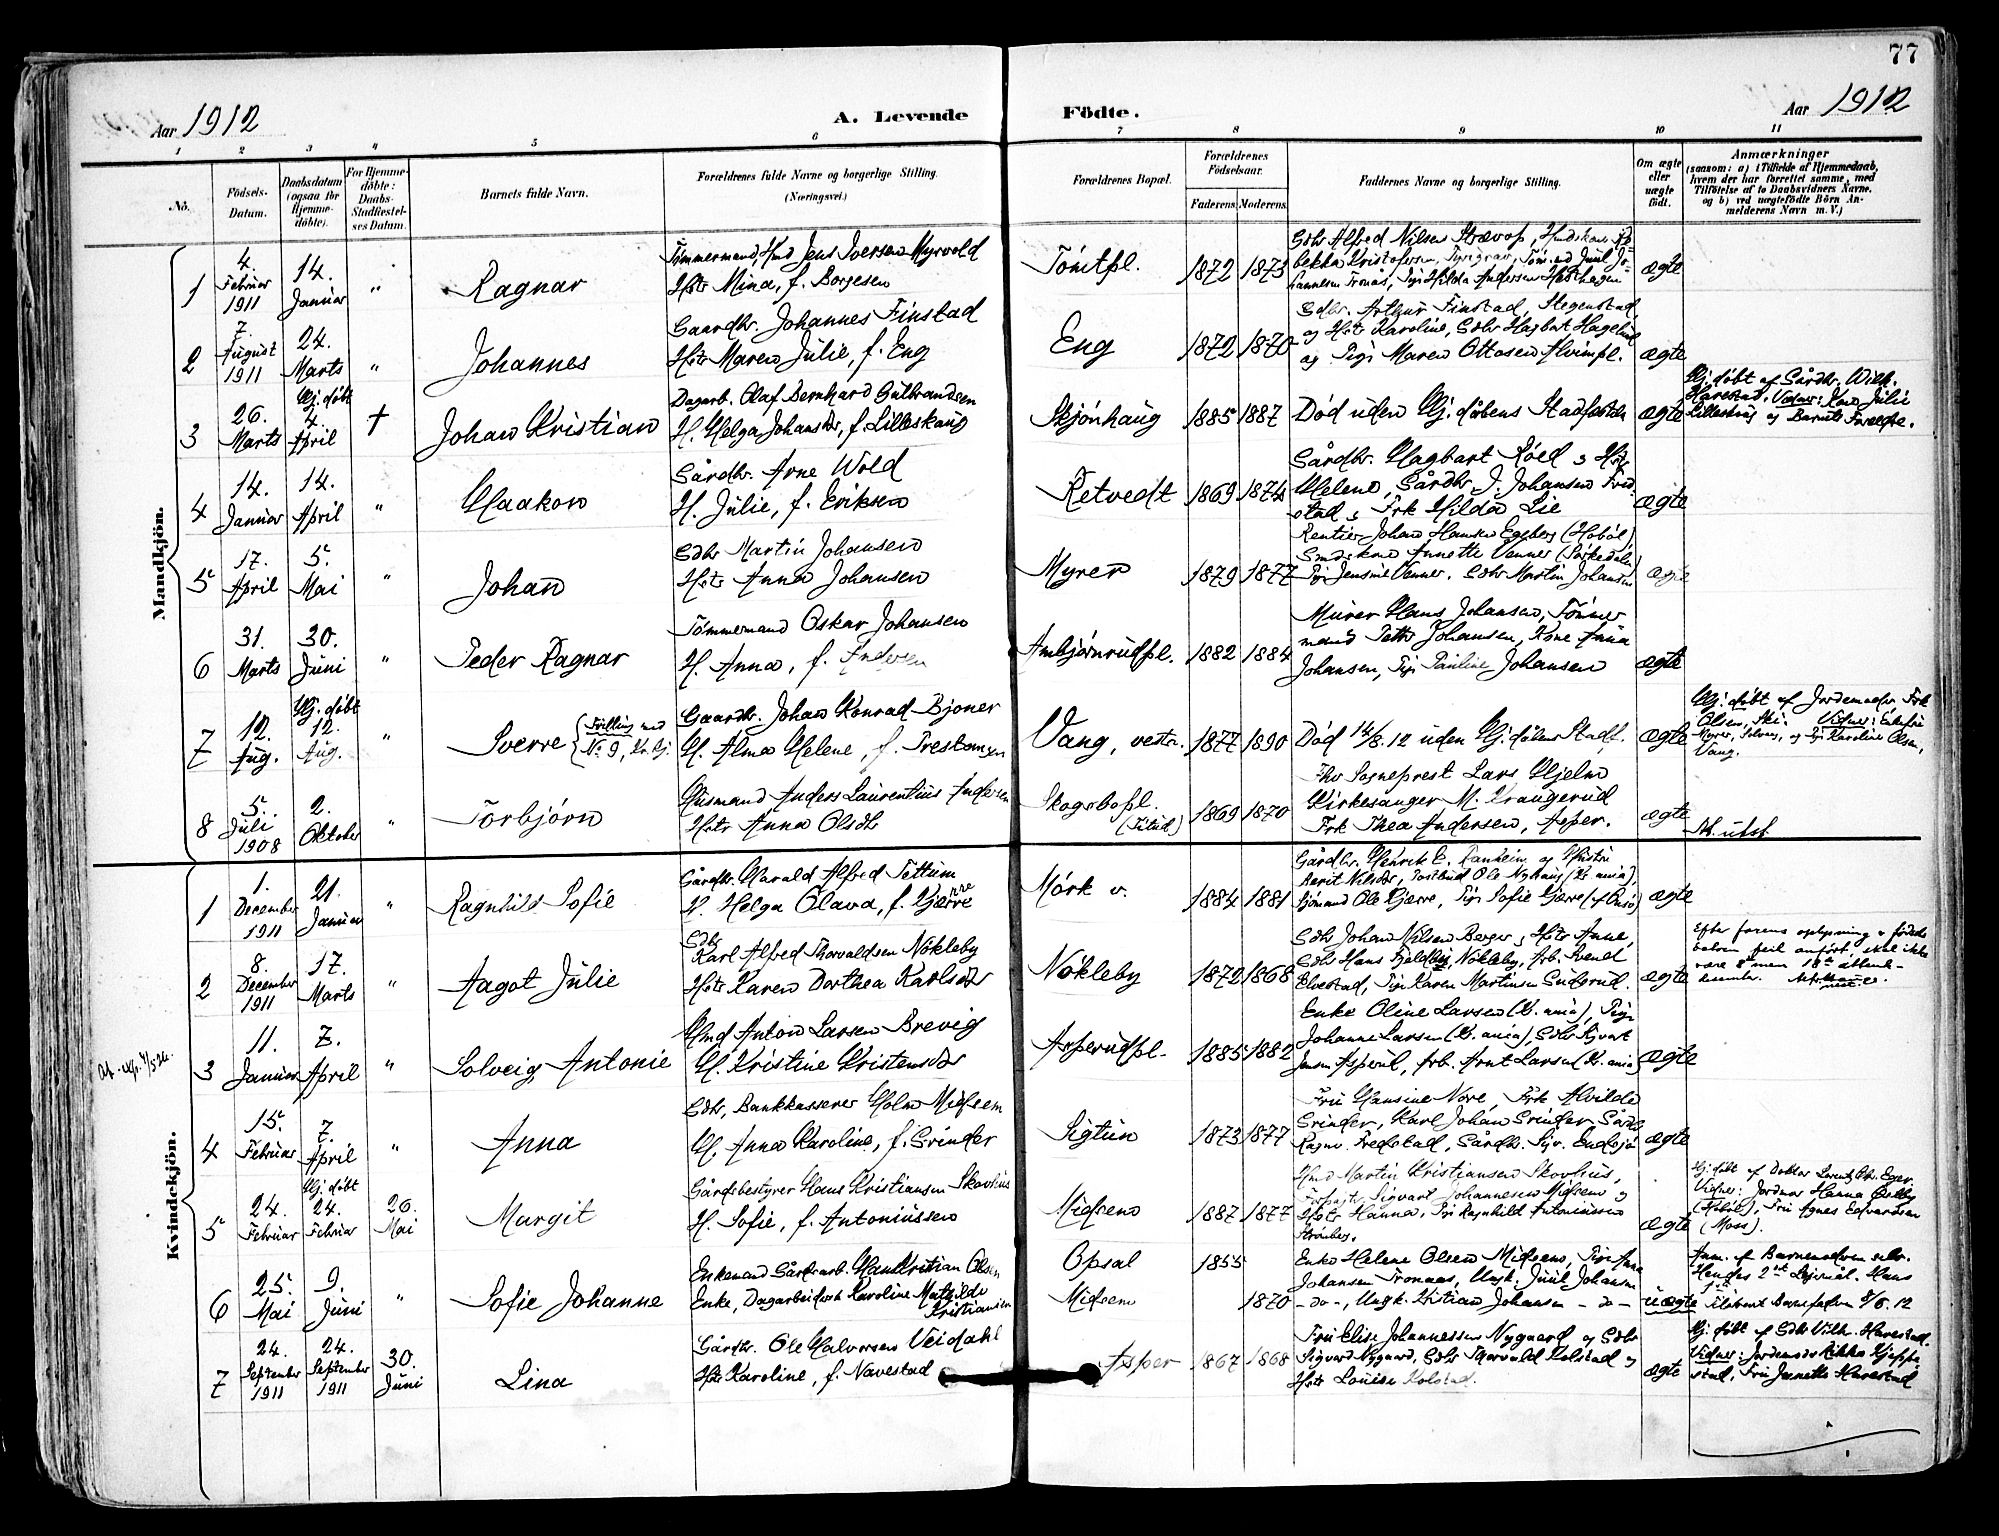 77
Aar 1912
A. Levende Födte.
Aar 1912
1 2 3 4 5 6 7 8 9 10 11
No.
Födsels-Datum.
Daabsdatum (ogsaa for Hjemmedöbte).
For Hjemmedöbte: Daabs-Stadfæstelses Datum.
Barnets fulde Navn.
Forældrenes fulde Navne og borgerlige Stilling.
(Næringsvei.)
Forældrenes Bopæl.
Forældrenes Födselsaar.
Faderens. Moderens.
Faddernes Navne og borgerlige Stilling.
Om ægte eller uægte födt.
Anmærkninger
(saasom: a) i Tilfælde af Hjemmedaab, hvem der har forrettet samme, med Tilföielse af to Daabsvidners Navne, og b) ved uægtefödte Börn Anmelderens Navn m. V.)
Mandkjön.
1 4. Februar 1911 14. Januar " Ragnar
Tömmermand, Hmd Jens Iversen Myrvold
Hstr Mina, f. Borgesen
Tömtpl. 1872 1873
Gdbr Alfred Nilsen
ægte
2 7. August 1911 24. Marts " Johannes
Gaardbr. Johannes Finstad
Hstr Maren Julie, f. Eng
Eng 1872 1870
Gdbr. Arthur Finstad, Hegenstad,
og Hstr Karoline, Gdbr Hagbart
og Pige Maren Ottosen
ægte
3 26. Marts Hj. döbt 4. April † Johan Kristian
Dagarb. Olaf Bernhard Gulbrandsen
H. Helga Johansdtr, f. Lilleskaug
Skjönhaug 1885 1887
Död uden Hj. döbens Stadfæstelse
ægte
Hj. döbt af Gårdbr. Wilh.
Harestad. Vidner: Julie
Lilleskaug og Barnets Forældre.
4 14. Januar 14. April " Haakon
Gårdbr. Arne Wold
H. Julie, f. Eriksen
Retvedt 1869 1874
Gårdbr. Hagbart Röed og
Helene, Gårdbr J. Johansen Fred-
stad, Frk Hilda Lie
ægte
5 17. April 5. Mai " Johan
Gdbr Martin Johansen
Hstr Anna Johansen
Myrer 1879 1877
Rentier Johan Hansen Egeberg (Hobøl),
Annette Venner
Pige Jensine Venner. Gdbr Martin Johansen
ægte
6 31. Marts 30. Juni " Peder Ragnar
Tömmermand Oskar Johansen
H. Anna, f. Andersen
Ambjörnrudpl. 1882 1884
Murer Hans Johansen, Tömmer
mand Petter Johansen, Kone Anna
Johansen, Pige Pauline Johansen
ægte
7 12. Aug. Hj. döbt 12. Aug. " Sverre (Tvilling med No. 9,
Gaardbr. Johan Konrad Bjoner
H. Alma Helene, f. Prestangen
Vang, vestre. 1877 1890
Död 14/8. 12 uden Hj. döbens Stadf.
ægte
Hj. döbt af Jordemoder Frk
Olsen, Ski. Vidner: Enkefru
Myrer, og Pige Karoline Olsen,
Vang.
8 5. Juli 1908 2. Oktober " Torbjörn
Husmand Anders Laurentius Andersen
Hstr Anna Olsdtr
Skogsbopl. 1869 1870
Fhv Sogneprest Lars Hjelm
Kirkesanger M. Krangerud
Frk Thea Andersen, Asper.
ægte
Kvindekjön.
1 1. December 1911 21. Januar " Ragnhild Sofie
Gårdbr. Harald Alfred Tettum
H. Helga Olava, f. Gjærre
Mörk v. 1884 1881
Gårdbr. Henrik E. Ranheim og Hustru
Berit Nilsdtr, Postbud Ole Nyhaug (Kr.ania),
Sjömand Ole Gjærre, Pige Sofie Gjærre
ægte
2 8. December 1911 17. Marts " Aagot Julie
Gdbr Karl Alfred Thorvaldsen Nökleby
Hstr Karen Dorthea Karlsdtr
Nökleby 1872 1868
Gdbr Johan Nilsen Berger, Hstr Anne,
Gdbr Hans Nökleby, Arb. Svend
Elvestad, Pige Karen Martinsen Suterud.
ægte
Efter farens oplysning er fødsels-
datoen feil anført, skal ikke
være 8 men 18de attende
3 11. Januar 7. April " Solveig Antonie
Hmd Anton Larsen Brevig
H. Kristine Kristensdtr
Asperudpl. 1885 1882
Enke Oline Larsen (Kr.ania), Pige
Johanne Larsen (Kr.ania), Gdbr Sigvart
Jensen Asperud, Arb. Arnt Larsen (Kr.ania)
ægte
4 15. Februar 7. April " Anna
Gdbr, Bankkasserer Holm Midsem
H. Anna Karoline, f. Grinder
Sigtun 1873 1877
Fru Hansine Nore, Frk Alvilde
Grinder, Karl Johan Grinder
Ragnv. Fredstad, Gårdbr. Sigv. Endsjö
ægte
5 24. Februar Hj. döbt 24. Februar 26. Mai Margit
Gårdsbestyrer Hans Kristiansen Skovlius
H. Sofie, f. Antoniussen
Midsem 1887 1877
Hmd Martin Kristiansen Skovlius,
Forpagt. Sigvart Johannesen Midsem og
Hstr Hanna, Pige Ragnhild Antoniussen
Strömberg.
ægte
Hj. döbt af Doktor Eger.
Vidner: Jordmor Hanna
(Hobøl), Fru Agnes Edvardsen
(Moss).
6 25. Mai 9. Juni " Sofie Johanne
Enkemand Gårdarb. Hans Kristian Olsen
Enke, Dagarbeidersk Karoline Mathilde Kristiansen
Opsal 1855
Midsem 1870
Enke Helene Olsen Midsem, Pige Anna
Johansen Tronaas, Ungk. Juul Johansen
- do -, Ungk. Kristian Johansen - do -
uægte
Anm. af Barnemoderen selv.
Hendes 2det Leiermål. Hans
1ste Barnefaderen 8/6. 12
7 24. September 1911 24. September 1911 30. Juni Lina
Gårdbr. Ole Halvorsen Veidahl
Hstr Karoline, f. Navestad
Asper 1867 1868
Fru Elise Johannessen Nygaard og Gdbr
Sigvard Nygaard, Gdbr Thorvald Kolstad og
Hstr Louise Kolstad.
ægte
Hj. döbt af Gdbr Vilh. Harestad.
Vidner: Jordemoder Rikka Kjeppe-
stad, Fru Jeanette Harestad